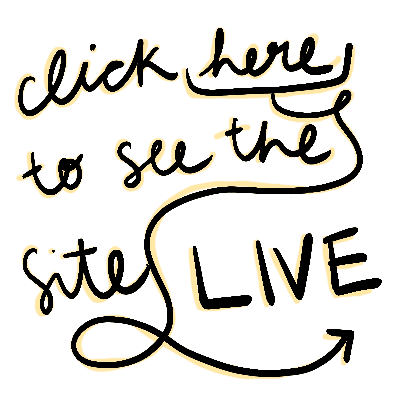 click here
to see the
site LIVE